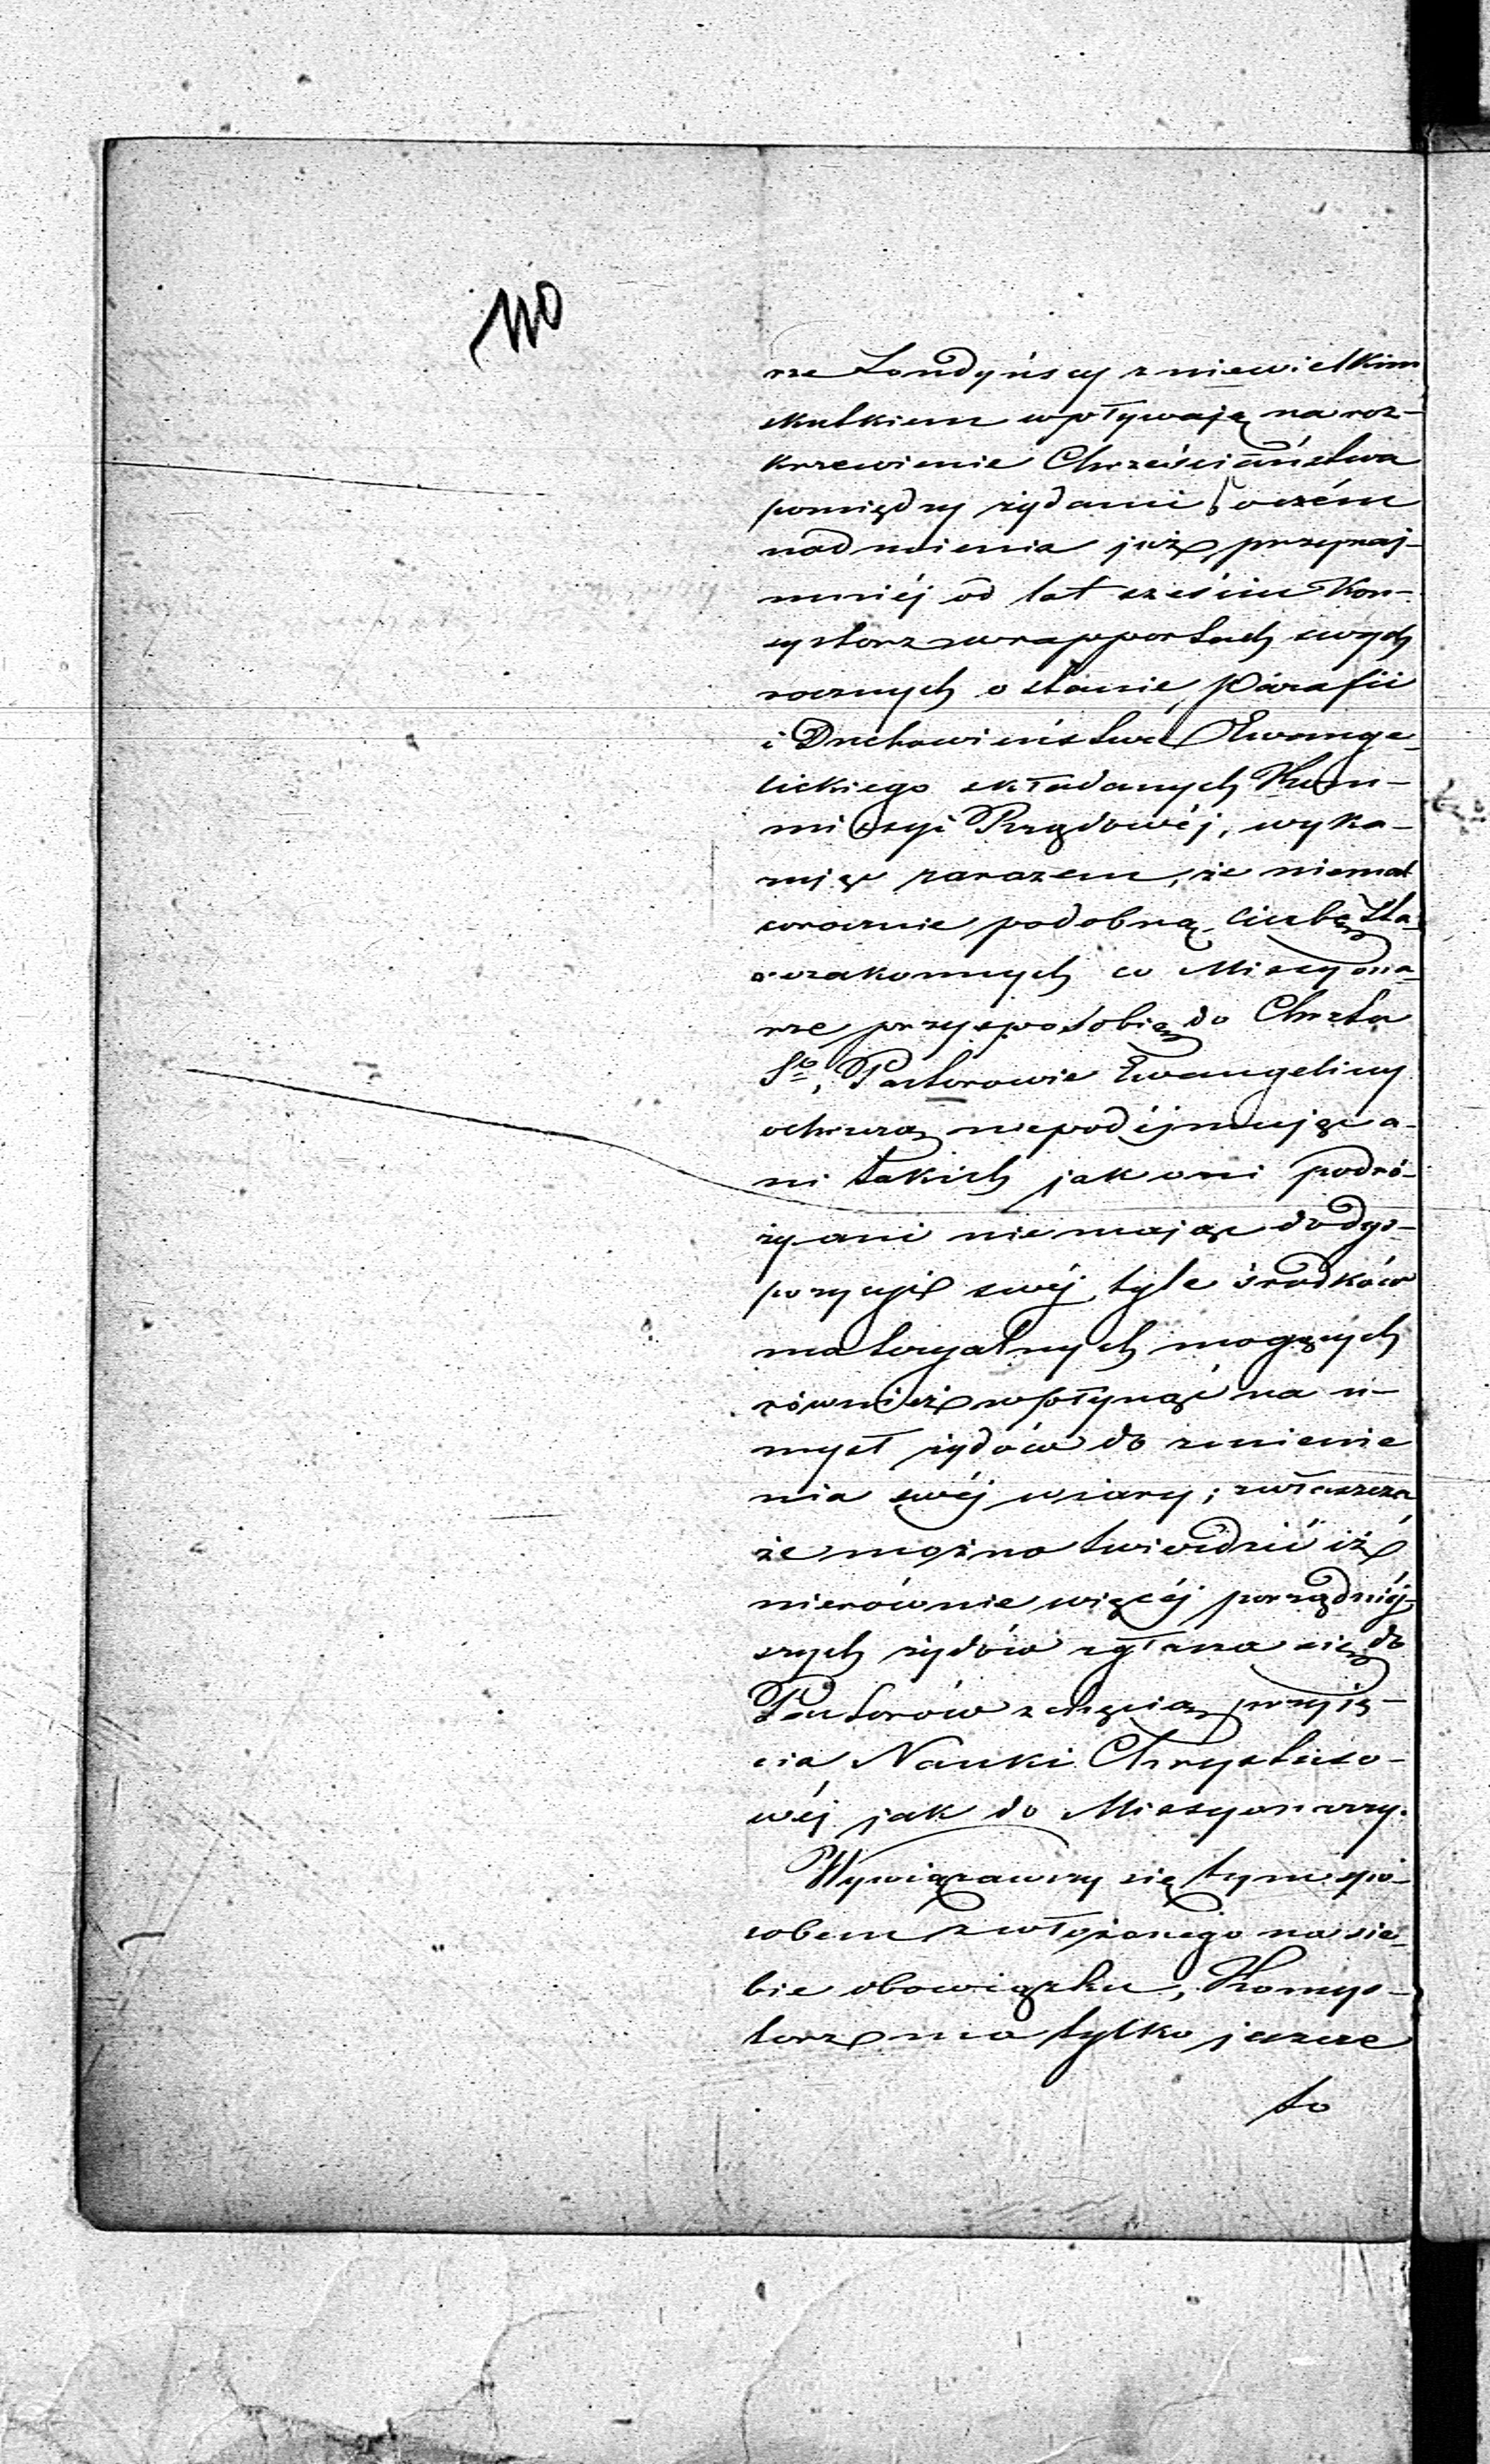 110
rze Londyńscy z niewielkim
skutkiem wpływają na roz-
krzewienie Chrześciaństwa
pomiędzy żydami o czém
nadmienia już przynaj-
mniéj od lat sześciu Kon-
systorz w rapportach swych
rocznych o stanie Parafii
i Duchowieństwa Ewange-
lickiego składanych Kom-
missyi Rządowéj, wyka-
zując zarazem, że niemal
corocznie podobną liczbę sta-
rozakonnych co Missyona-
rze przysposobią do Chrztu
Sgo, Pastorowie Ewangeliccy
ochrzczą niepodéjmując a-
ni takich jak oni podró-
ży ani nie mając do dys-
pozycyi swéj tyle środków
materyalnych mogących
również wpłynąć na u-
mysł żydów do zmienie
nia swéj wiary; zwłaszcza
że można twierdzić iż
nierównie więcéj porządniéj-
szych żydów zgłasza się do
Pastorów z chęcią przyję-
cia Nauki Chrystuso-
wéj jak do Missyonarzy.
Wywiązawszy się tym spo-
sobem z włożonego na sie-
bie obowiązku, Konsys-
torz ma tylko jeszcze
to